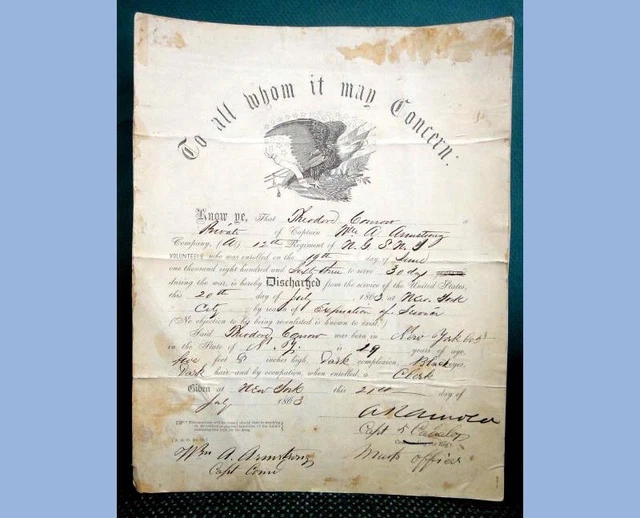 To all whom it may Concern:
Know ye, That Theodore Conrow a
Private of Captain Wm A. Armstrong
Company, (A) 12th Regiment of N. G. S. N. Y
VOLUNTEERS who was enrolled on the 19th day of June
one thousand eight hundred and Sixty three to serve 30 days
during the war, is hereby Discharged from the service of the United States,
this 20th day of July 1863 at New York
City by reason of Expiration of Service
(No objection to his being re-enlisted is known to exist.)
Said Theodore Conrow was born in New York
in the State of N. Y. is 29 years of age,
five feet 8 inches high, Dark complexion, Black eyes,
Dark hair and by occupation, when enrolled, a Clerk
Given at New York this 20th day of
July 1863
Capt 5 Cavalry
Wm A. Armstrong
Must officer
Capt Comd